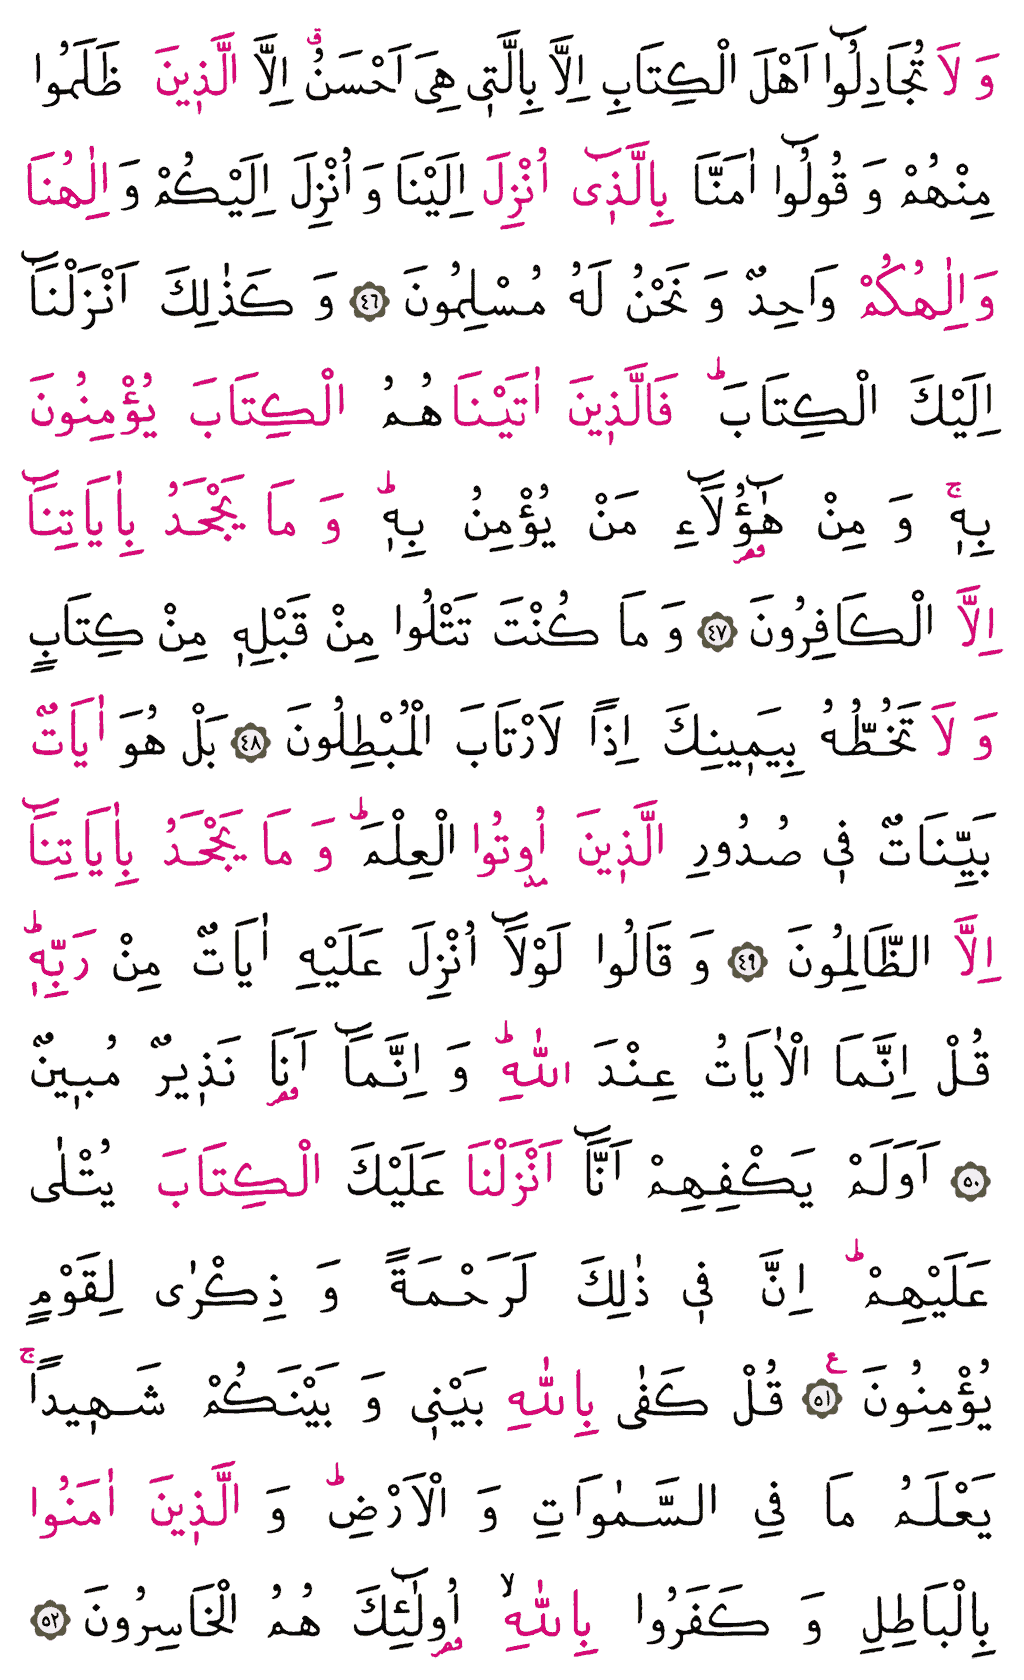 وَ لَا تُجَادِلُٓوا اَهْلَ الْكِتَابِ اِلَّا بِالَّتٖي هِىَ اَحْسَنُۗ اِلَّا الَّذٖينَ ظَلَمُوا
مِنْهُمْ وَ قُولُٓوا اٰمَنَّا بِالَّذٖٓى اُنْزِلَ اِلَيْنَا وَ اُنْزِلَ اِلَيْكُمْ وَ اِلٰهُنَا
وَ اِلٰهُكُمْ وَاحِدٌ وَ نَحْنُ لَهُ مُسْلِمُونَ ﴿٤٦﴾ وَ كَذٰلِكَ اَنْزَلْنَٓا
اِلَيْكَ الْكِتَابَؕ فَالَّذٖينَ اٰتَيْنَاهُمُ الْكِتَابَ يُؤْمِنُونَ
بِهٖۚ وَ مِنْ هٰٓؤُلَٓاءِ مَنْ يُؤْمِنُ بِهٖؕ وَ مَا يَجْحَدُ بِاٰيَاتِنَٓا
اِلَّا الْكَافِرُونَ ﴿٤٧﴾ وَ مَا كُنْتَ تَتْلُوا مِنْ قَبْلِهٖ مِنْ كِتَابٍ
وَ لَا تَخُطُّهُ بِيَمٖينِكَ اِذًا لَارْتَابَ الْمُبْطِلُونَ ﴿٤٨﴾ بَلْ هُوَ اٰيَاتٌ
بَيِّنَاتٌ فٖي صُدُورِ الَّذٖينَ اُوتُوا الْعِلْمَؕ وَ مَا يَجْحَدُ بِاٰيَاتِنَٓا
اِلَّا الظَّالِمُونَ ﴿٤٩﴾ وَ قَالُوا لَوْلَٓا اُنْزِلَ عَلَيْهِ اٰيَاتٌ مِنْ رَبِّهٖؕ
قُلْ اِنَّمَا الْاٰيَاتُ عِنْدَ اللّٰهِؕ وَ اِنَّمَٓا اَنَا نَذٖيرٌ مُبٖينٌ
﴿٥٠﴾ اَوَلَمْ يَكْفِهِمْ اَنَّٓا اَنْزَلْنَا عَلَيْكَ الْكِتَابَ يُتْلٰى
عَلَيْهِمْؕ اِنَّ فٖي ذٰلِكَ لَرَحْمَةً وَ ذِكْرٰى لِقَوْمٍ
يُؤْمِنُونَ ﴿٥١﴾ ع قُلْ كَفٰى بِاللّٰهِ بَيْنٖي وَ بَيْنَكُمْ شَهٖيدًاۚ
يَعْلَمُ مَا فِي السَّمٰوَاتِ وَ الْاَرْضِؕ وَ الَّذٖينَ اٰمَنُوا
بِالْبَاطِلِ وَ كَفَرُوا بِاللّٰهِۙ اُو۬لٰٓئِكَ هُمُ الْخَاسِرُونَ ﴿٥٢﴾